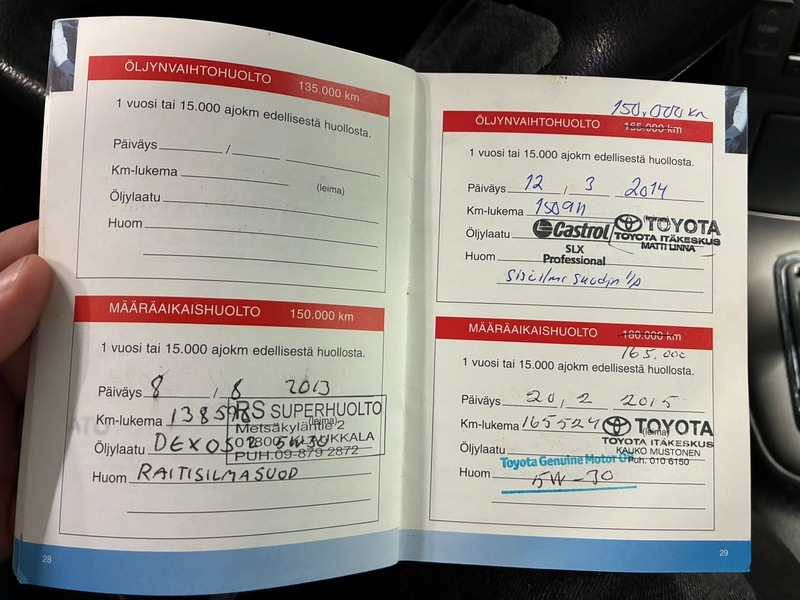 ÖLJYNVAIHTOHUOLTO 135.000 km
1 vuosi tai 15.000 ajokm edellisestä huollosta.
Päiväys / 
Km-lukema
(leima)
Öljylaatu
Huom
MÄÄRÄAIKAISHUOLTO 150.000 km
1 vuosi tai 15.000 ajokm edellisestä huollosta.
Päiväys 8 / 8 2013
Km-lukema 138598
RS SUPERHUOLTO
(leima)
Metsäkyläntie 2
Öljylaatu DEXOS02 5W30
KLAUKKALA
PUH.09-879 2872
Huom RAITISILMASUOD
28
150,000 km
ÖLJYNVAIHTOHUOLTO 165.000 km
1 vuosi tai 15.000 ajokm edellisestä huollosta.
Päiväys 12 / 3 2014
Km-lukema 150911
(leima)
TOYOTA
Öljylaatu Castrol
TOYOTA ITÄKESKUS
MATTI LINNA
SLX
Huom Professional
29
MÄÄRÄAIKAISHUOLTO 180.000 km
165.000
1 vuosi tai 15.000 ajokm edellisestä huollosta.
Päiväys 20, 2 2015
Km-lukema 165524
(leima)
TOYOTA
TOYOTA ITÄKESKUS
Öljylaatu
KAUKO MUSTONEN
Toyota Genuine Motor Oil
Puh. 010 6150
Huom 5W-30
TEMP